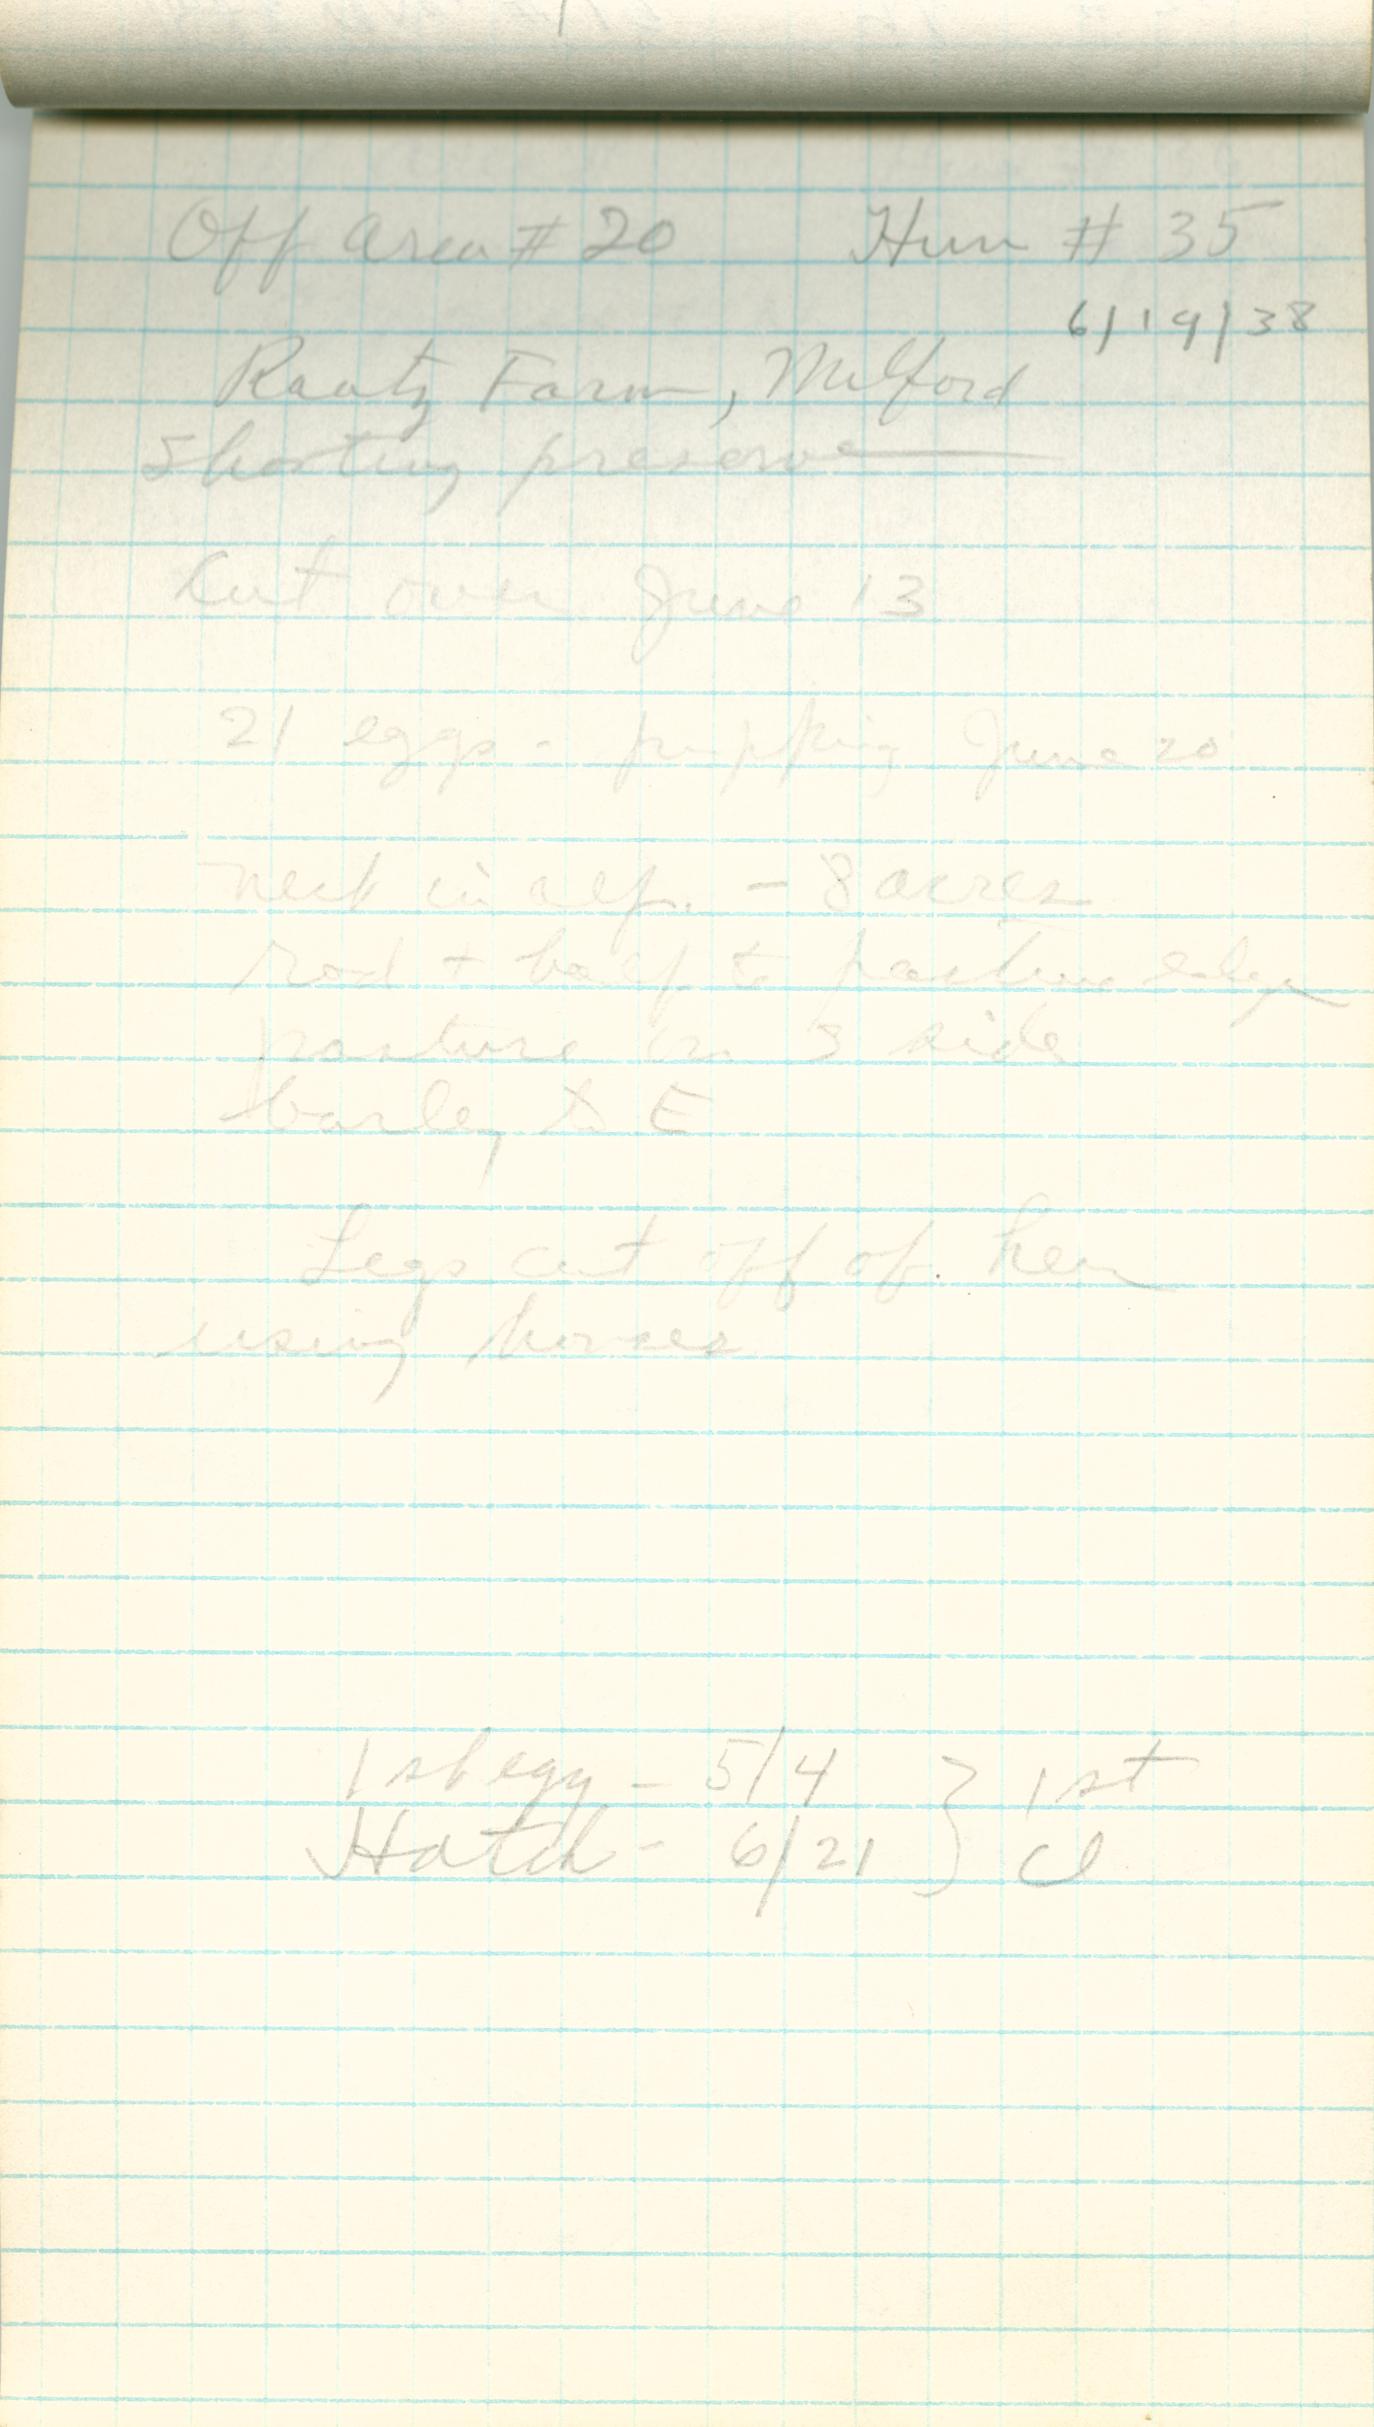 Off Area # 20 Hun # 35
6/19/38
Raatz Farm, Milford
Shooting preserve
Cut over June 13
21 eggs - pipping June 20
nest in alf. - 8 acres
rod + half to pasture edge
pasture on 3 side
barley to E
Legs cut off of hen
using horses
1st egg - 5/4 } 1st
Hatch - 6/21 } cl